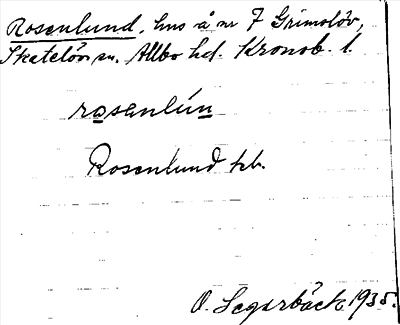 Rosenlund, hus å nr 7 Grimslöv,
Skatelöv sn. Allbo hd. Kronob. l.
rosenlún
Rosenlund kb.
O. Segerbäck 1935.